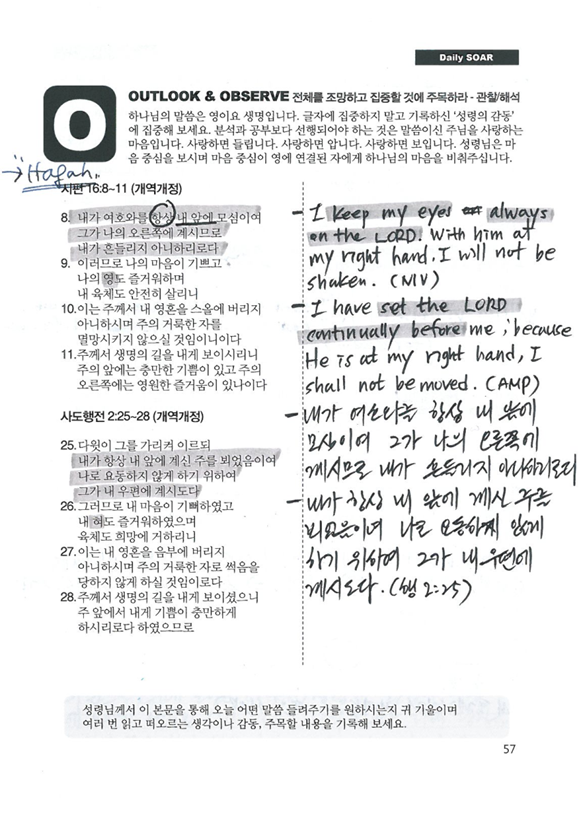 Daily SOAR
O
OUTLOOK & OBSERVE 전체를 조망하고 집중할 것에 주목하라 - 관찰/해석
하나님의 말씀은 영이요 생명입니다. 글자에 집중하지 말고 기록하신 ‘성령의 감동’
에 집중해 보세요. 분석과 공부보다 선행되어야 하는 것은 말씀이신 주님을 사랑하는
마음입니다. 사랑하면 들립니다. 사랑하면 압니다. 사랑하면 보입니다. 성령님은 마
음 중심을 보시며 마음 중심이 영에 연결된 자에게 하나님의 마음을 비춰주십니다.
Hagah
시편 16:8~11 (개역개정)
8. 내가 여호와를 항상 내 앞에 모심이여
그가 나의 오른쪽에 계시므로
내가 흔들리지 아니하리로다
9. 이러므로 나의 마음이 기쁘고
나의 영도 즐거워하며
내 육체도 안전히 살리니
10. 이는 주께서 내 영혼을 스올에 버리지
아니하시며 주의 거룩한 자를
멸망시키지 않으실 것임이니이다
11. 주께서 생명의 길을 내게 보이시리니
주의 앞에는 충만한 기쁨이 있고 주의
오른쪽에는 영원한 즐거움이 있나이다
사도행전 2:25~28 (개역개정)
25. 다윗이 그를 가리켜 이르되
내가 항상 내 앞에 계신 주를 뵈었음이여
나로 요동하지 않게 하기 위하여
그가 내 우편에 계시도다
26. 그러므로 내 마음이 기뻐하였고
내 혀도 즐거워하였으며
육체도 희망에 거하리니
27. 이는 내 영혼을 음부에 버리지
아니하시며 주의 거룩한 자로 썩음을
당하지 않게 하실 것임이로다
28. 주께서 생명의 길을 내게 보이셨으니
주 앞에서 내게 기쁨이 충만하게
하시리로다 하였으므로
- I keep my eyes always
on the LORD. With him at
my right hand, I will not be
shaken. (NIV)
- I have set the LORD
continually before me ; because
He is at my right hand, I
shall not be moved. (AMP)
- 내가 여호와를 항상 내 앞에
모심이여 그가 나의 오른쪽에
계시므로 내가 흔들리지 아니하리로다
- 내가 항상 내 앞에 계신 주를
뵈었음이여 나로 요동하지 않게
하기 위하여 그가 내 우편에
계시도다. (행 2:25)
성령님께서 이 본문을 통해 오늘 어떤 말씀 들려주기를 원하시는지 귀 기울이며
여러 번 읽고 떠오르는 생각이나 감동, 주목할 내용을 기록해 보세요.
57